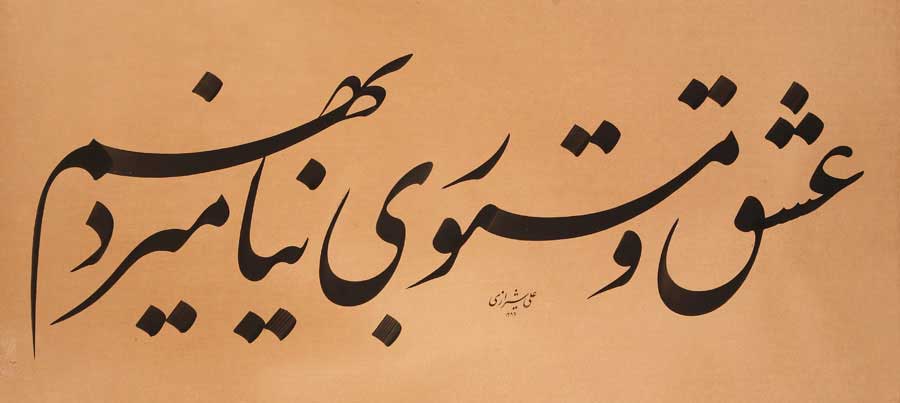 عشق و مستوری نیامیزد بهم
علی شیرازی